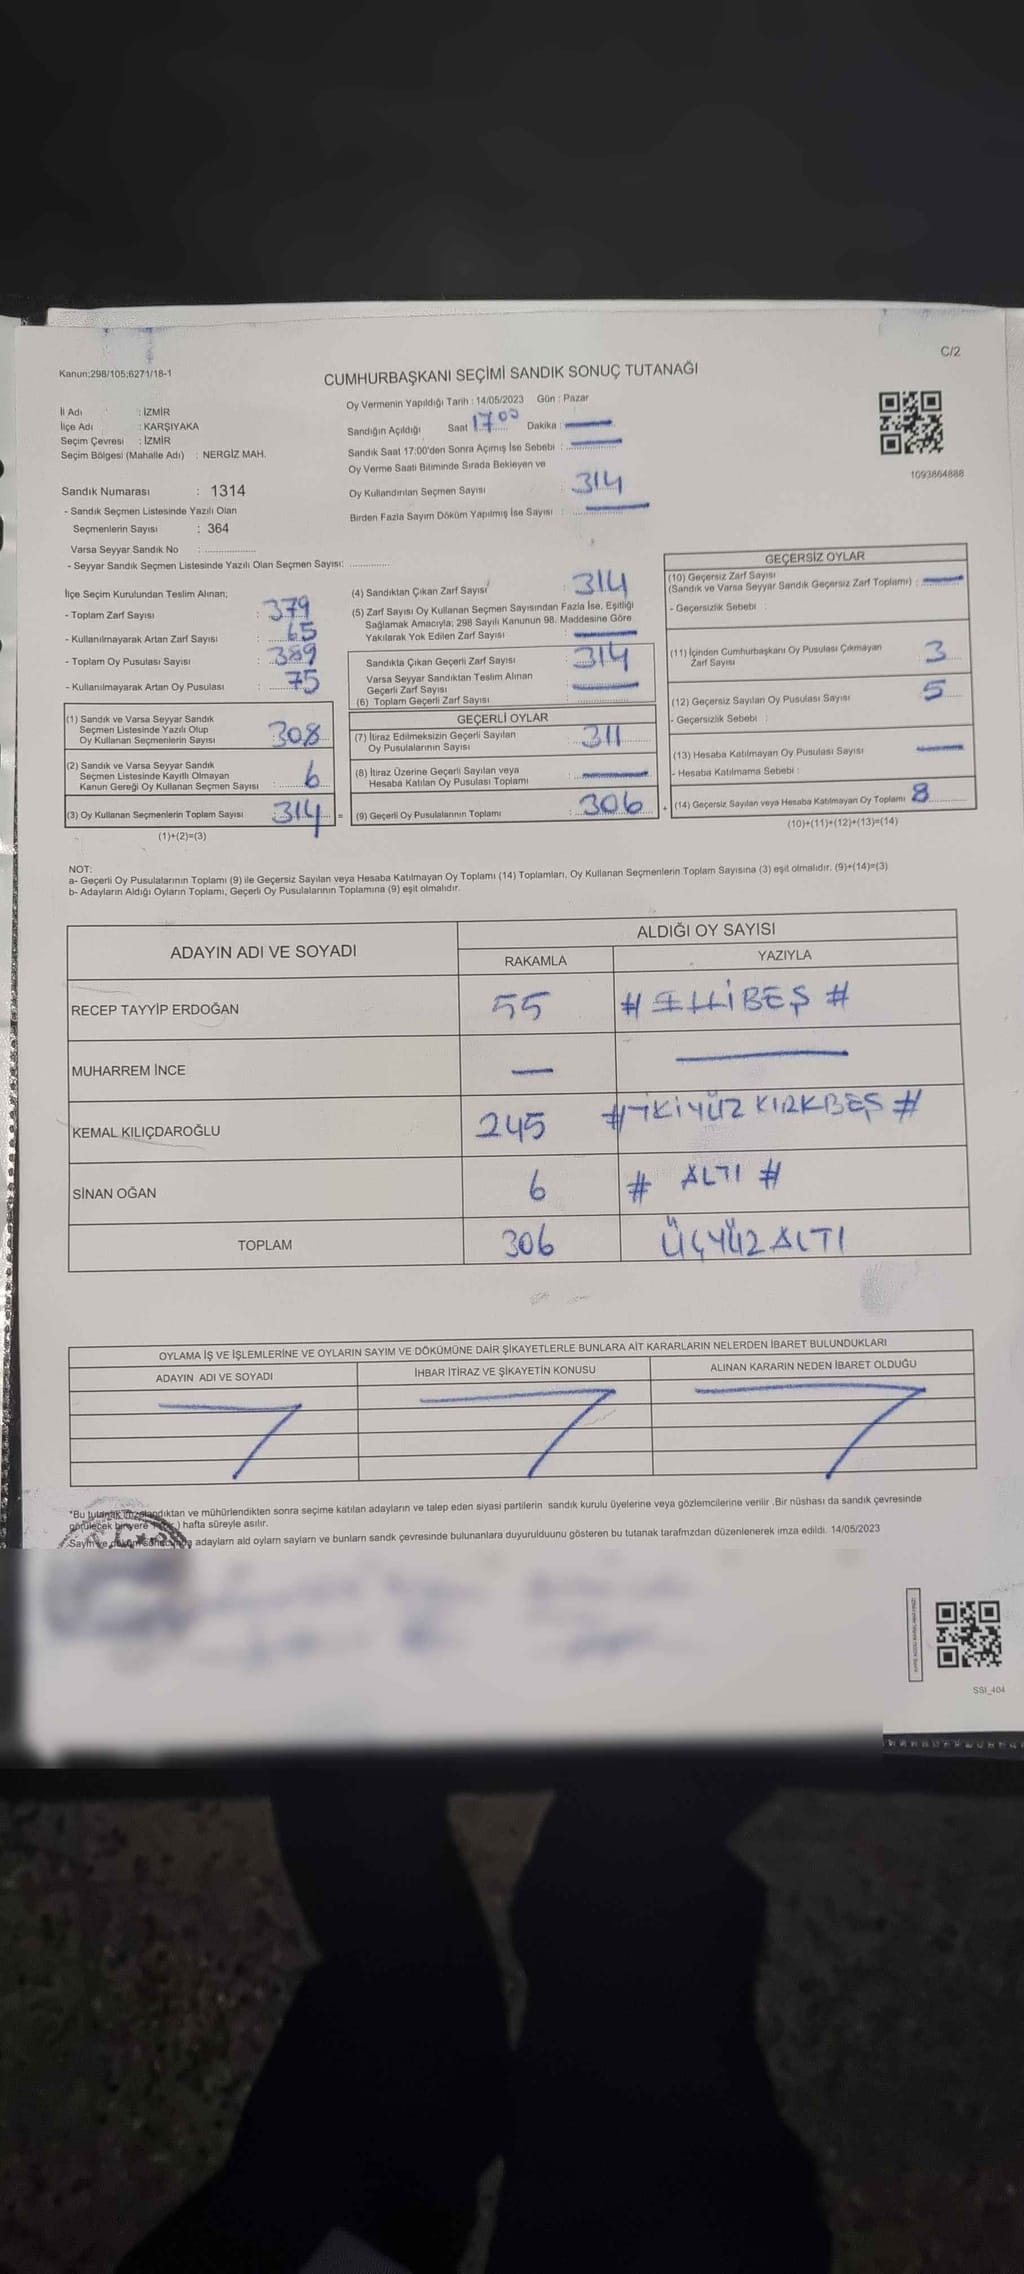 C/2
Kanun:298/105;6271/18-1
CUMHURBAŞKANI SEÇİMİ SANDIK SONUÇ TUTANAĞI
İl Adı : İZMİR
İlçe Adı : KARŞIYAKA
Seçim Çevresi : İZMİR
Seçim Bölgesi (Mahalle Adı) : NERGİZ MAH.
Sandık Numarası : 1314
- Sandık Seçmen Listesinde Yazılı Olan
Seçmenlerin Sayısı : 364
Varsa Seyyar Sandık No : ....................
- Seyyar Sandık Seçmen Listesinde Yazılı Olan Seçmen Sayısı: ..............
Oy Vermenin Yapıldığı Tarih : 14/05/2023 Gün : Pazar
Sandığın Açıldığı Saat 17 00 Dakika : —
Sandık Saat 17:00'den Sonra Açımış İse Sebebi : —
Oy Verme Saati Bitiminde Sırada Bekleyen ve
Oy Kullandırılan Seçmen Sayısı : 314
Birden Fazla Sayım Döküm Yapılmış İse Sayısı : —
1093864888
İlçe Seçim Kurulundan Teslim Alınan;
- Toplam Zarf Sayısı : 379
- Kullanılmayarak Artan Zarf Sayısı : 65
- Toplam Oy Pusulası Sayısı : 389
- Kullanılmayarak Artan Oy Pusulası : 75
(1) Sandık ve Varsa Seyyar Sandık
Seçmen Listesinde Yazılı Olup
Oy Kullanan Seçmenlerin Sayısı : 308
(2) Sandık ve Varsa Seyyar Sandık
Seçmen Listesinde Kayıtlı Olmayan
Kanun Gereği Oy Kullanan Seçmen Sayısı : 6
(3) Oy Kullanan Seçmenlerin Toplam Sayısı : 314 =
(1)+(2)=(3)
(4) Sandıktan Çıkan Zarf Sayısı : 314
(5) Zarf Sayısı Oy Kullanan Seçmen Sayısından Fazla İse, Eşitliği
Sağlamak Amacıyla; 298 Sayılı Kanunun 98. Maddesine Göre
Yakılarak Yok Edilen Zarf Sayısı : —
Sandıkta Çıkan Geçerli Zarf Sayısı : 314
Varsa Seyyar Sandıktan Teslim Alınan
Geçerli Zarf Sayısı : —
(6) Toplam Geçerli Zarf Sayısı : ....................
GEÇERLİ OYLAR
(7) İtiraz Edilmeksizin Geçerli Sayılan
Oy Pusulalarının Sayısı : 311
(8) İtiraz Üzerine Geçerli Sayılan veya
Hesaba Katılan Oy Pusulası Toplamı : —
(9) Geçerli Oy Pusulalarının Toplamı : 306 +
GEÇERSİZ OYLAR
(10) Geçersiz Zarf Sayısı
(Sandık ve Varsa Seyyar Sandık Geçersiz Zarf Toplamı) : —
- Geçersizlik Sebebi :
(11) İçinden Cumhurbaşkanı Oy Pusulası Çıkmayan
Zarf Sayısı 3
(12) Geçersiz Sayılan Oy Pusulası Sayısı 5
- Geçersizlik Sebebi :
(13) Hesaba Katılmayan Oy Pusulası Sayısı —
- Hesaba Katılmama Sebebi :
(14) Geçersiz Sayılan veya Hesaba Katılmayan Oy Toplamı 8
(10)+(11)+(12)+(13)=(14)
NOT:
a- Geçerli Oy Pusulalarının Toplamı (9) ile Geçersiz Sayılan veya Hesaba Katılmayan Oy Toplamı (14) Toplamları, Oy Kullanan Seçmenlerin Toplam Sayısına (3) eşit olmalıdır. (9)+(14)=(3)
b- Adayların Aldığı Oyların Toplamı, Geçerli Oy Pusulalarının Toplamına (9) eşit olmalıdır.
ADAYIN ADI VE SOYADI
ALDIĞI OY SAYISI
RAKAMLA YAZIYLA
RECEP TAYYİP ERDOĞAN 55 # ELLİBEŞ #
MUHARREM İNCE — —
KEMAL KILIÇDAROĞLU 245 # İKİYÜZ KIRKBEŞ #
SİNAN OĞAN 6 # ALTI #
TOPLAM 306 ÜÇYÜZ ALTI
OYLAMA İŞ VE İŞLEMLERİNE VE OYLARIN SAYIM VE DÖKÜMÜNE DAİR ŞİKAYETLERLE BUNLARA AİT KARARLARIN NELERDEN İBARET BULUNDUKLARI
ADAYIN ADI VE SOYADI İHBAR İTİRAZ VE ŞİKAYETİN KONUSU ALINAN KARARIN NEDEN İBARET OLDUĞU
*Bu tutanak imzalandıktan ve mühürlendikten sonra seçime katılan adayların ve talep eden siyasi partilerin sandık kurulu üyelerine veya gözlemcilerine verilir .Bir nüshası da sandık çevresinde
görülecek bir yere hafta süreyle asılır.
adaylarn ald oylarn saylarn ve bunlarn sandk çevresinde bulunanlara duyurulduunu gösteren bu tutanak tarafmzdan düzenlenerek imza edildi. 14/05/2023
SSI_404